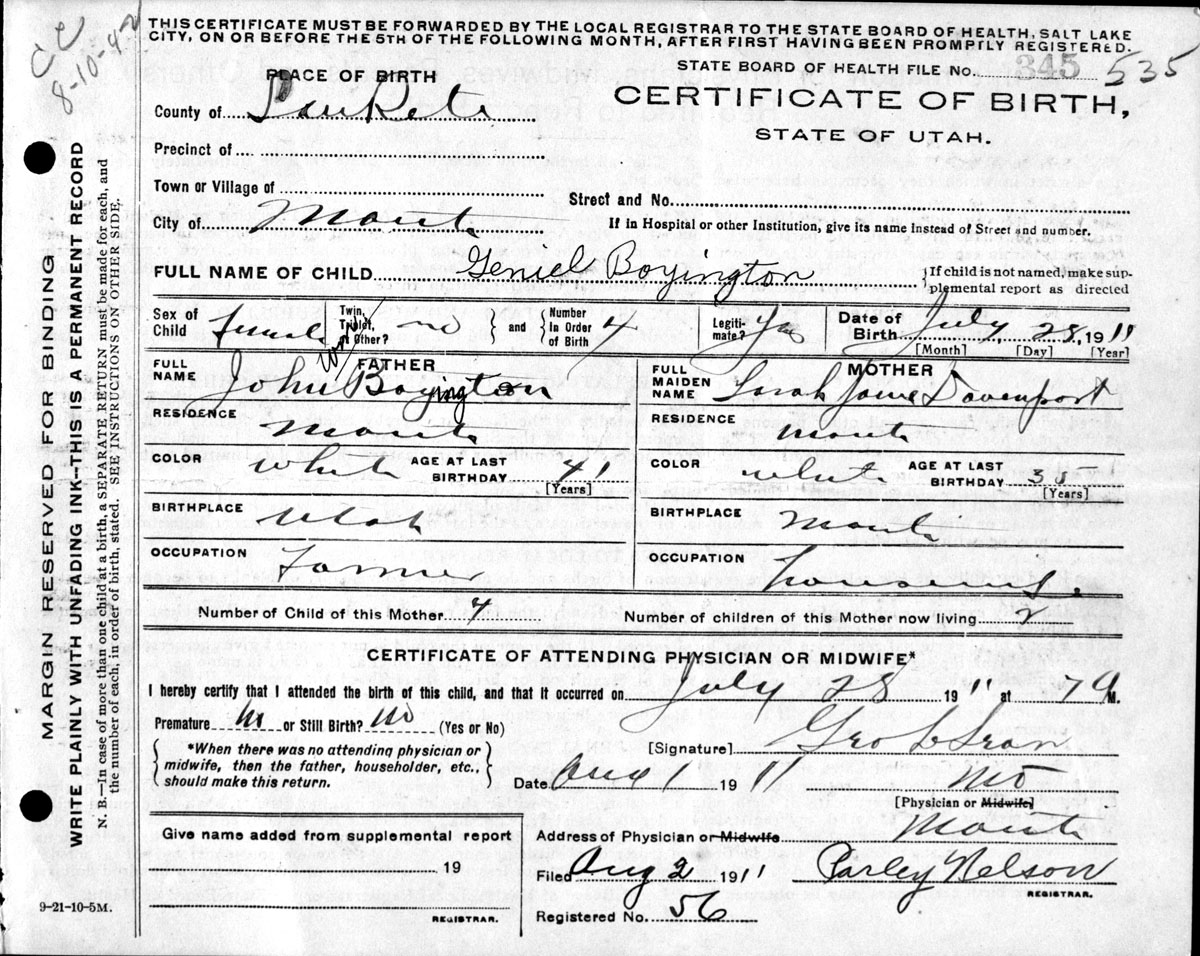 CC
8-10-42
THIS CERTIFICATE MUST BE FORWARDED BY THE LOCAL REGISTRAR TO THE STATE BOARD OF HEALTH, SALT LAKE
CITY, ON OR BEFORE THE 5TH OF THE FOLLOWING MONTH, AFTER FIRST HAVING BEEN PROMPTLY REGISTERED.
STATE BOARD OF HEALTH FILE No. 345 535
PLACE OF BIRTH
CERTIFICATE OF BIRTH,
STATE OF UTAH.
County of
Precinct of
Town or Village of
Street and No.
City of Manti
If in Hospital or other Institution, give its name instead of Street and number.
FULL NAME OF CHILD Geniel Boyington } If child is not named, make sup-
plemental report as directed
Sex of Child female Twin, Triplet, or Other? no { and } Number In Order of Birth 4 Legiti-mate? Yes Date of Birth July 28, 1911
[Month] [Day] [Year]
FATHER
FULL NAME John Boyington
RESIDENCE Manti
COLOR White AGE AT LAST BIRTHDAY 41
[Years]
BIRTHPLACE Utah
OCCUPATION Farmer
MOTHER
FULL MAIDEN NAME Sarah Jane Davenport
RESIDENCE Manti
COLOR White AGE AT LAST BIRTHDAY 35
[Years]
BIRTHPLACE Manti
OCCUPATION
Number of Child of this Mother 4 Number of children of this Mother now living 2
CERTIFICATE OF ATTENDING PHYSICIAN OR MIDWIFE*
I hereby certify that I attended the birth of this child, and that it occurred on July 28 1911 at 7 A M.
Premature No or Still Birth? No (Yes or No)
{ *When there was no attending physician or
midwife, then the father, householder, etc.,
should make this return. }
[Signature] Geo L
Date Aug 1 1911 MD
[Physician or Midwife]
Give name added from supplemental report
19
REGISTRAR.
Address of Physician or Midwife Manti
Filed Aug 2 1911 Parley Nelson
REGISTRAR.
Registered No. 56
9-21-10-5M.
MARGIN RESERVED FOR BINDING
WRITE PLAINLY WITH UNFADING INK-THIS IS A PERMANENT RECORD
N. B.—In case of more than one child at a birth, a SEPARATE RETURN must be made for each, and
the number of each, in order of birth, stated. SEE INSTRUCTIONS ON OTHER SIDE.